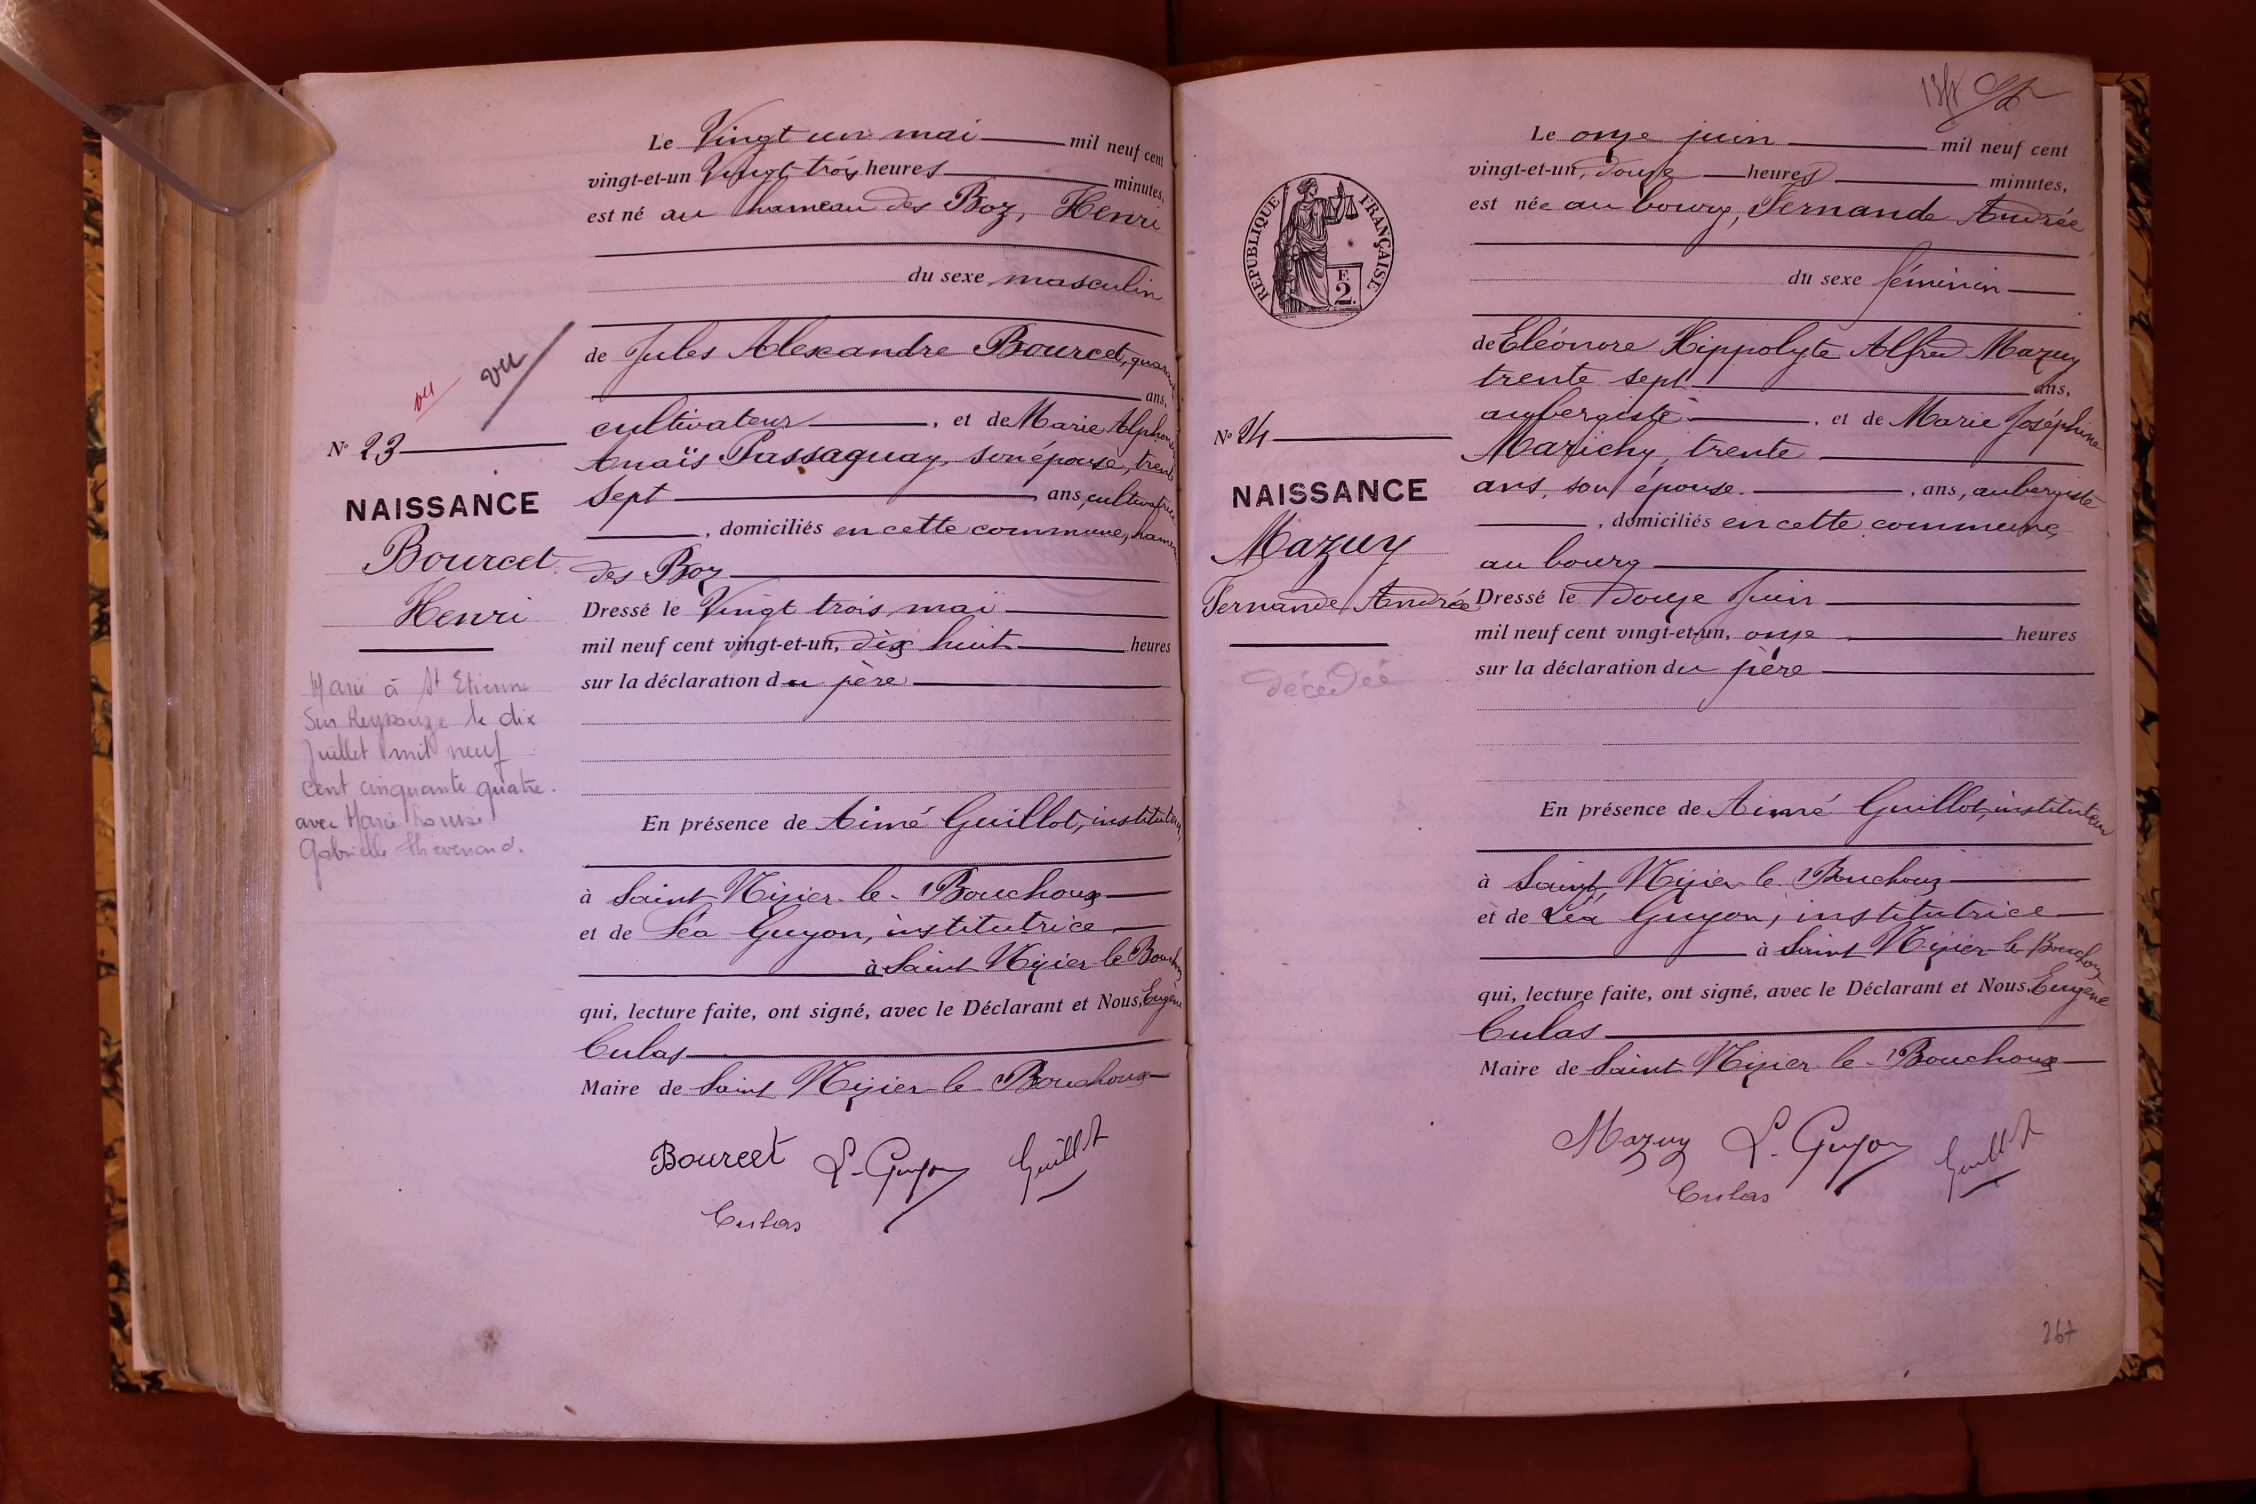 Le Vingt un mai mil neuf cent
vingt-et-un Vingt trois heures minutes,
est né au hameau des Boz, Henri
du sexe masculin
de Jules Alexandre Bourcet,
ans,
cultivateur, et de Marie
Anaïs Passaquay, son épouse, trente
sept ans, cultivatrice
, domiciliés en cette commune, hameau
des Boz
Dressé le Vingt trois mai
mil neuf cent vingt-et-un, dix huit heures
sur la déclaration du père
En présence de Aimé Guillot, instituteur,
à Saint Nizier le Bouchoux
et de Léa Guyon, institutrice
à Saint Nizier le Bouchoux
qui, lecture faite, ont signé, avec le Déclarant et Nous, Eugène
Culas
Maire de Saint Nizier le Bouchoux
Bourcet L. Guyon Guillot
Culas
vu vu
No 23
NAISSANCE
Bourcet
Henri
Marié à St Etienne
Sur Reyssouze le dix
Juillet mil neuf
cent cinquante quatre
avec Marie Louise
Gabrielle Thévenard.
RÉPUBLIQUE FRANÇAISE
2
No 24
NAISSANCE
Mazuy
Fernande Andrée
décédée
Le onze juin mil neuf cent
vingt-et-un, douze heures minutes,
est née au bourg, Fernande Andrée
du sexe féminin
de Eléonore Hippolyte Alfred Mazuy
trente sept ans,
aubergiste, et de Marie Joséphine
trente
ans, son épouse, ans, aubergiste
, domiciliés en cette commune,
au bourg
Dressé le douze Juin
mil neuf cent vingt-et-un, onze heures
sur la déclaration du père
En présence de Aimé Guillot, instituteur
à Saint Nizier le Bouchoux
et de Léa Guyon, institutrice
à Saint Nizier le Bouchoux
qui, lecture faite, ont signé, avec le Déclarant et Nous, Eugène
Culas
Maire de Saint Nizier le Bouchoux
Mazuy L. Guyon Guillot
Culas
267